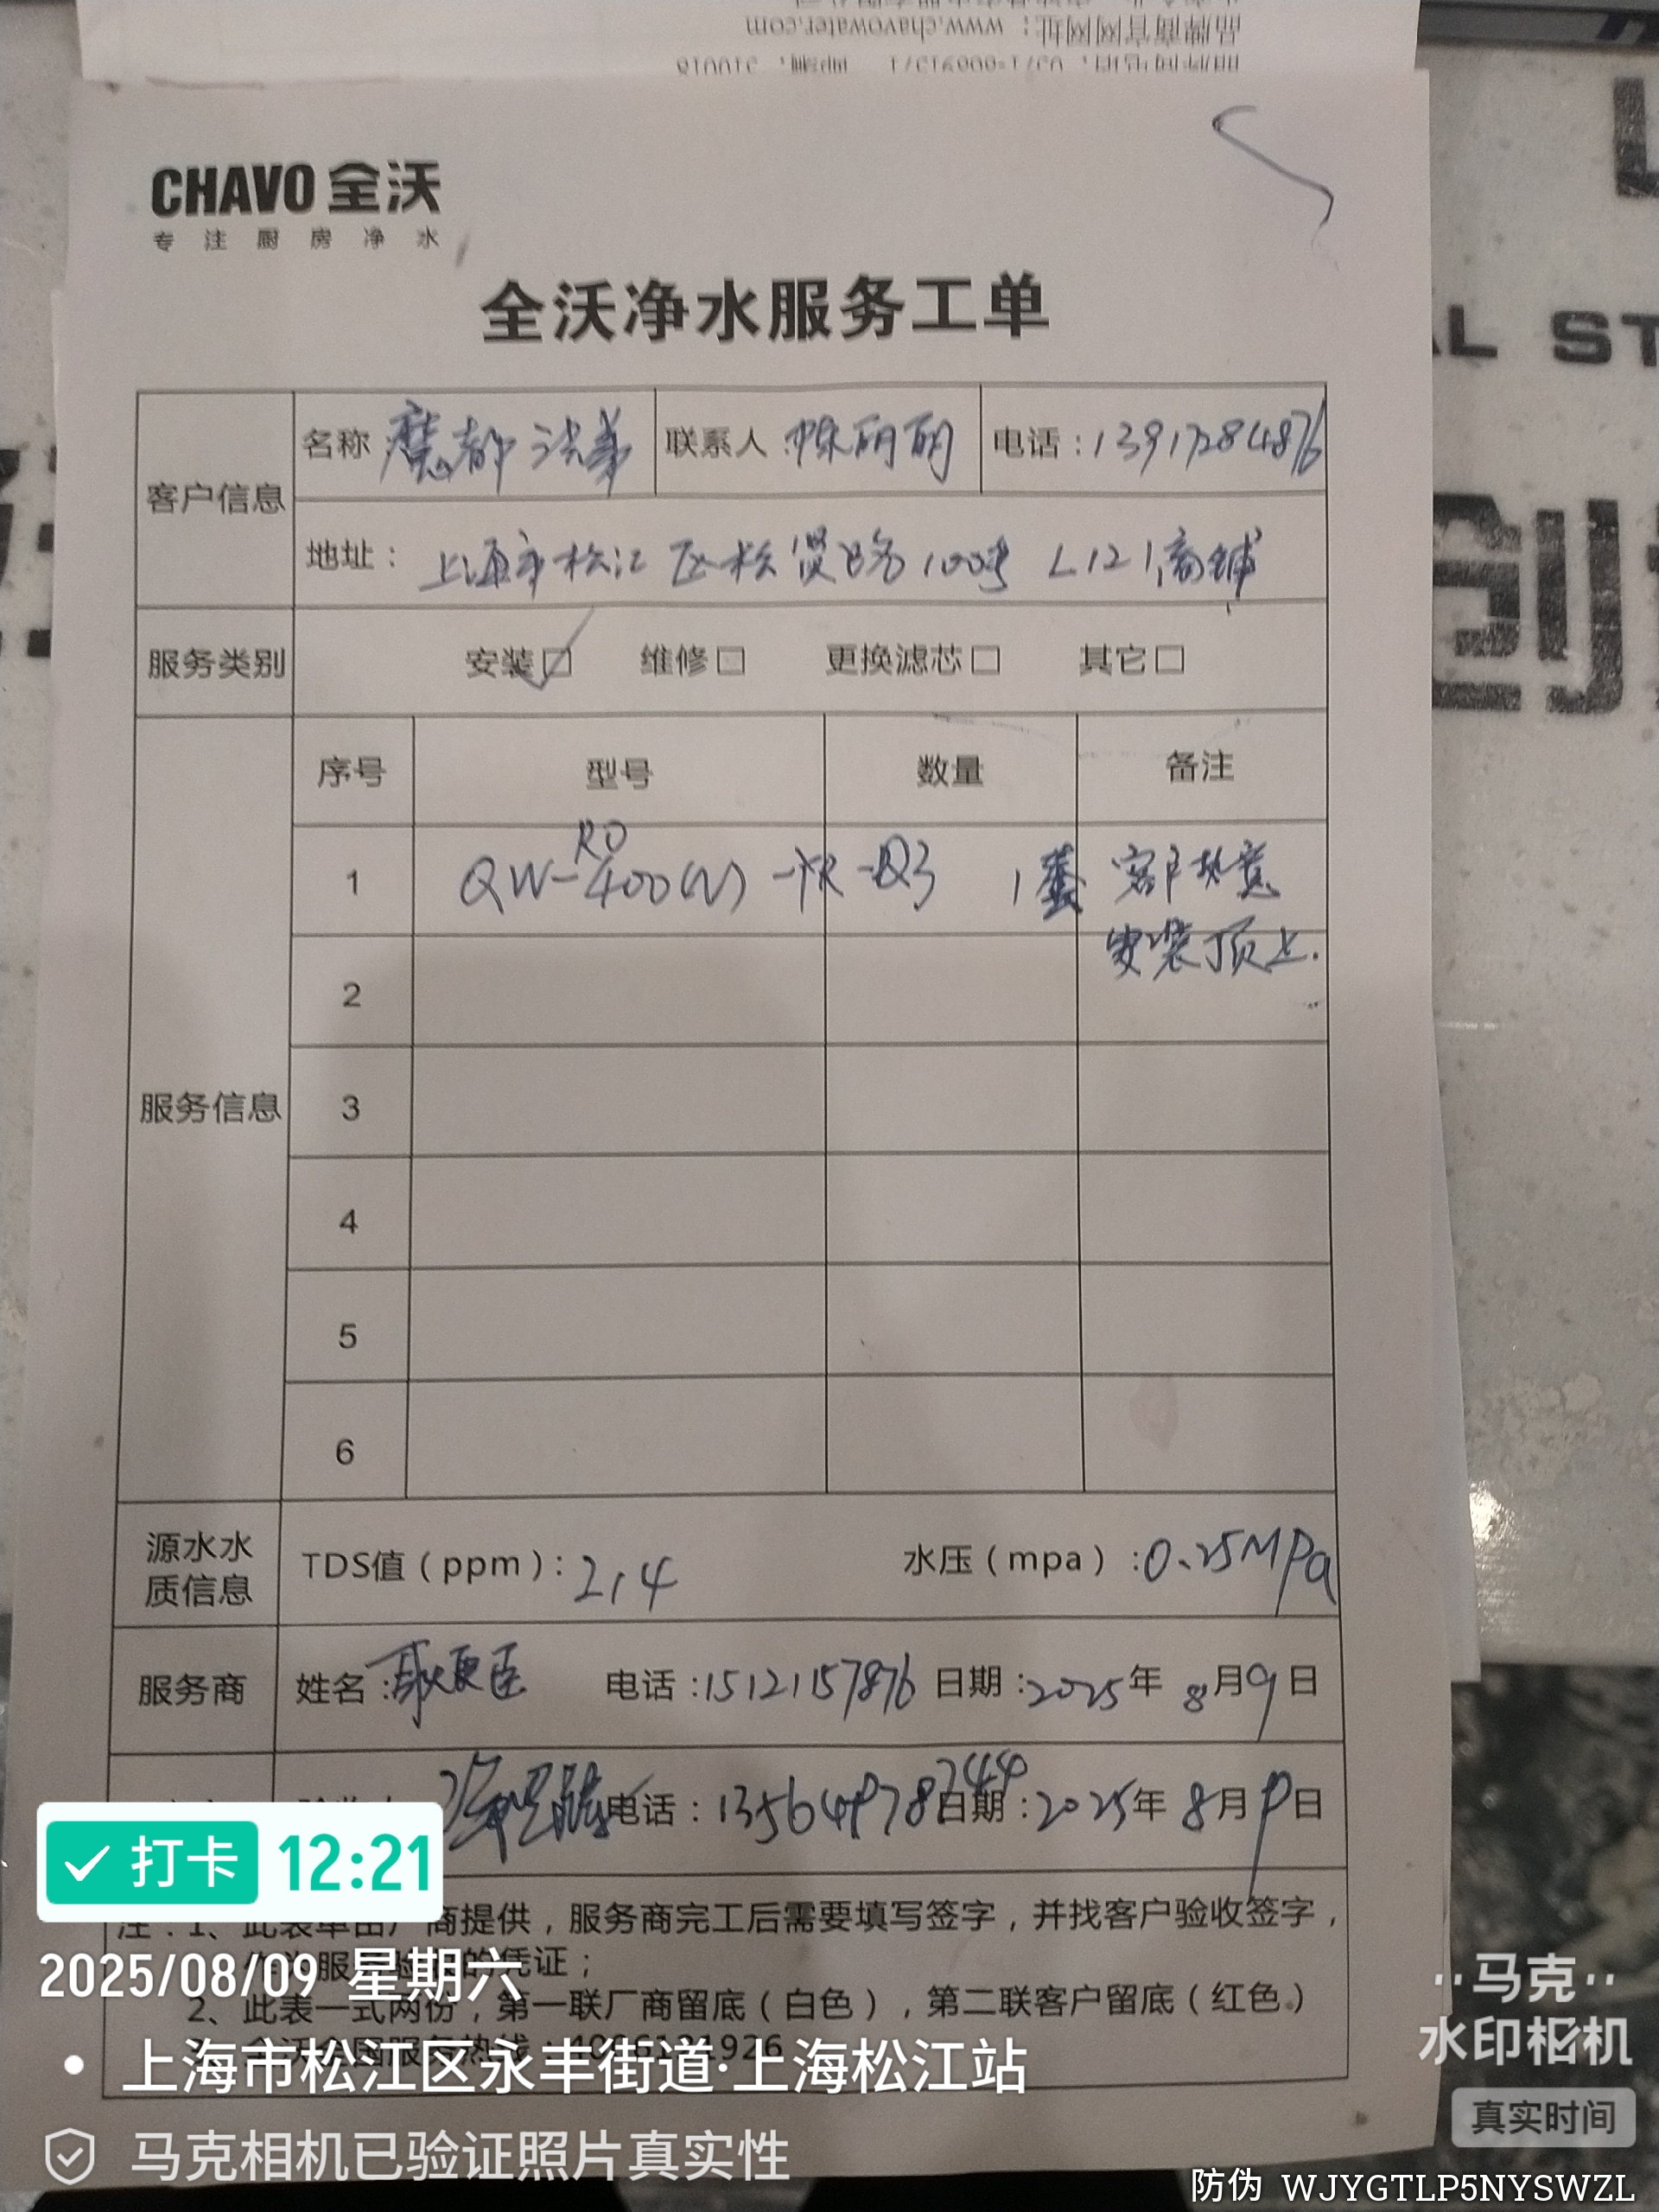 品牌商官网网址：www.chavowater.com
CHAVO 全沃
专注厨房净水
全沃净水服务工单
客户信息
名称 魔都法兼 联系人：陈丽丽 电话：13917284876
地址：上海市松江区松贤路100号 L121商铺
服务类别 安装☑ 维修□ 更换滤芯□ 其它□
服务信息
序号 型号 数量 备注
1 QW-RO400(N) 1套 客户执意
安装顶上.
2
3
4
5
6
源水水质信息 TDS值（ppm）：214 水压（mpa）：0.25MPa
服务商 姓名： 电话：15121157876 日期：2025年 8月9日
电话：13564978244 日期：2025年 8月9日
注：1、此表单由厂商提供，服务商完工后需要填写签字，并找客户验收签字，
作为服务验收的凭证；
2、此表一式两份，第一联厂商留底（白色），第二联客户留底（红色）
全沃全国服务热线：4006121926
打卡 12:21
2025/08/09 星期六
上海市松江区永丰街道·上海松江站
马克相机已验证照片真实性
马克
水印相机
真实时间
防伪 WJYGTLP5NYSWZL